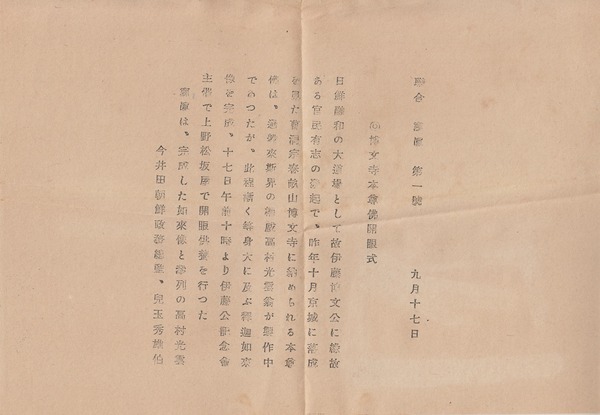 聯合 寫眞 第一號 九月十七日
博文寺本尊佛開眼式
日鮮融和の大道場として故伊藤博文公に縁故
ある官民有志の發起で、昨年十月京城に落成
を見た曹洞宗春畝山博文寺に納められる本尊
佛は、彫刻界の高村光雲翁が製作中
であつたが、此程漸く等身大に及ぶ釋迦如來
像を完成、十七日午前十時より伊藤公記念會
主催で上野松坂屋で開眼供養を行つた
寫眞は、完成した如來像と參列の高村光雲
今井田朝鮮政務總監、兒玉秀雄伯